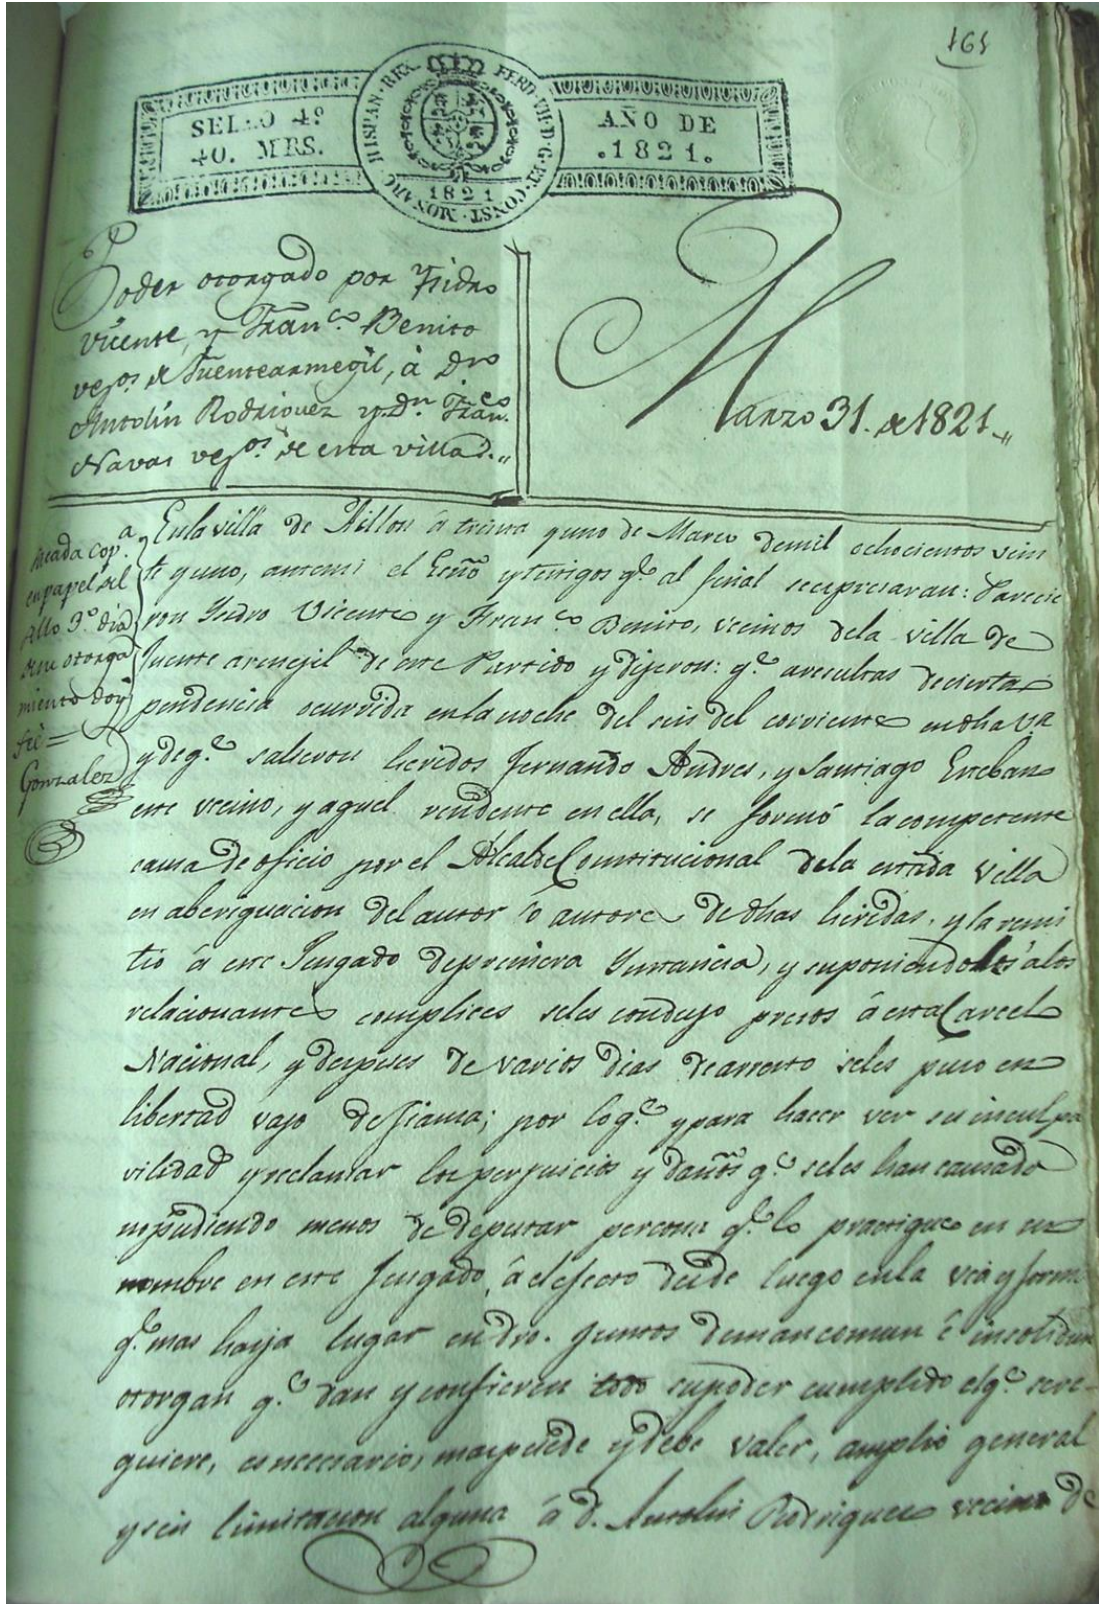 161
SELLO 4º
40. MRS.
HISPAN. REX. FERD. VII. D. G. ET. CONST. MONARC.
1821
AÑO DE
.1821.
Poder otorgado por Ysidro
Vicente, y Fran.co Benito
vez.os de Fuentearmegil, à Dn
Antolín Rodriguez y Dn. Fran.co
Navas vez.os de esta villa.
Marzo 31. de 1821.
Sacada cop.a
en papel del
sello 3º dia
de su otorga
miento doy
fee=
Gonzalez
En la villa de Aillon á treinta y uno de Marzo de mil ochocientos vein
te y uno, antemi el Esnō y testigos q.e al final se espresaran: Parecie
ron Ysidro Vicente y Fran.co Benito, vecinos dela villa de
Fuente armejil de este Partido y dijeron: q.e aresultas de cierta
pendencia ocurrida en la noche del seis del corriente en dha va
y de q.e salieron heridos Fernando Andres, y Santiago Esteban
este vecino, y aquel residente en ella, se formó la competente
causa de oficio por el Alcalde Constitucional dela citada villa
en aberiguacion del autor ó autores de dhas heridas, y la remi
tió á este Juzgado de primera Ynstancia, y suponiendolos álos
relacionantes complices seles condujo presos á esta Carcel
Nacional, y despues de varios dias de arresto seles puso en
libertad vajo de fianza; por lo q.e y para hacer ver su inculpa
vilidad y reclamar los perjuicios y daños q.e seles han causado
no pudiendo menos de deputar persona q.e lo practique en su
nombre en este Juzgado, á el efecto desde luego en la via y forma
q.e mas haya lugar en dro. juntos de mancomun é insolidum
otorgan q.e dan y confieren todo su poder cumplido el q.e sere-
quiere, es necesario, mas puede y debe valer, amplio general
y sin limitacion alguna á D. Antolin Rodriguez vecino de